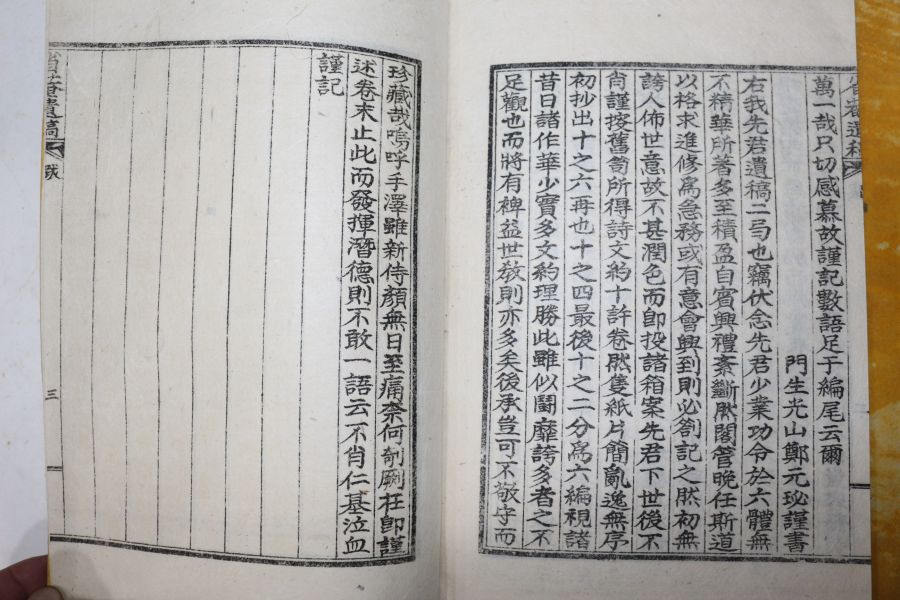 萬一哉只切感慕故謹記數語足于編尾云爾
門生光山鄭元珌謹書
右我先君遺稿二弓也竊伏念先君少業功令於六體無
不精華所著多至積盈自賓興禮紊斷然閣管晚任斯道
以格求進修爲急務或有意會興到則必劄記之然初無
誇人佈世意故不甚潤色而卽投諸箱案先君下世後不
肖謹按舊笥所得詩文約十許卷然隻紙片簡亂逸無序
初抄出十之六再也十之四最後十之二分爲六編視諸
昔日諸作華少實多文約理勝此雖似鬪靡誇多者之不
足觀也而將有裨益世敎則亦多矣後承豈可不敬守而
珍藏哉嗚呼手澤雖新侍顔無日至痛奈何剞劂在卽謹
述卷末止此而發揮潛德則不敢一語云不肖仁基泣血
謹記
遺稿
跋
三